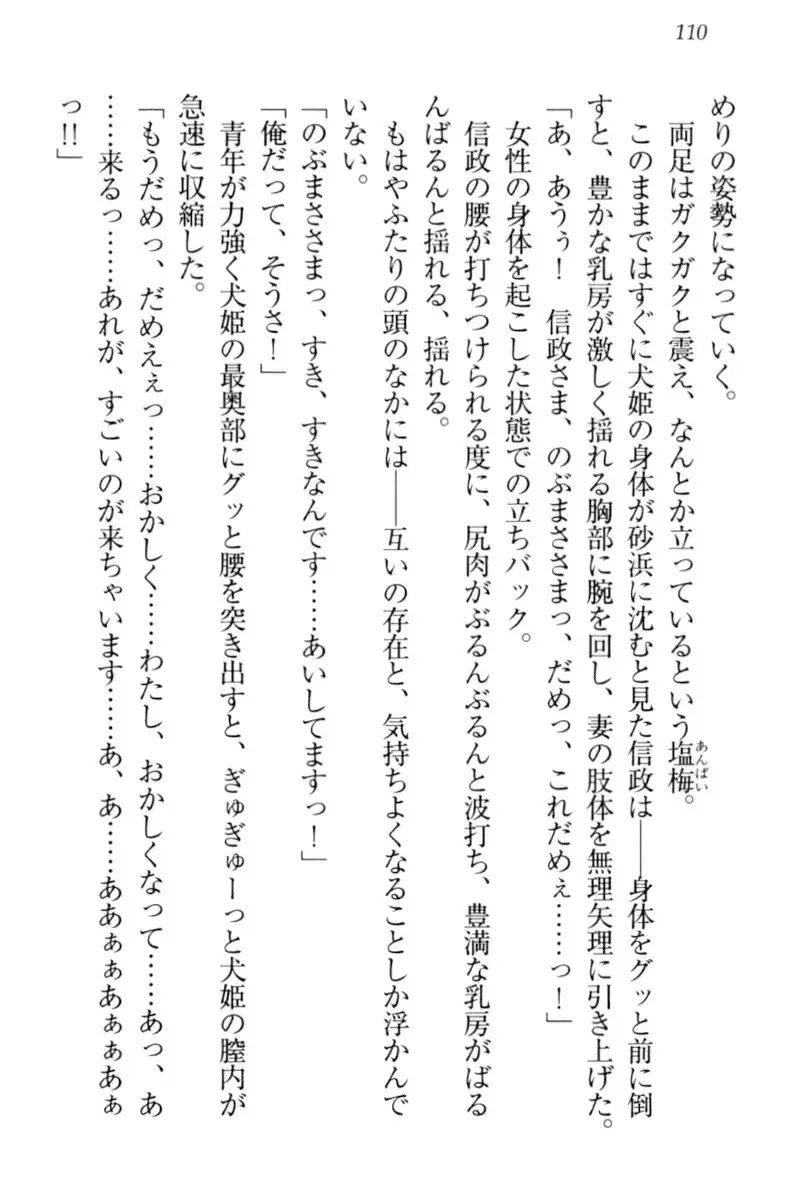 110
めりの姿勢になっていく。
両足はガクガクと震え、なんとか立っているという塩梅。
あんばい
このままではすぐに犬姫の身体が砂浜に沈むと見た信政は――身体をグッと前に倒
すと、豊かな乳房が激しく揺れる胸部に腕を回し、妻の肢体を無理矢理に引き上げた。
「あ、あうぅ！　信政さま、のぶまささまっ、だめっ、これだめぇ……っ！」
女性の身体を起こした状態での立ちバック。
信政の腰が打ちつけられる度に、尻肉がぶるんぶるんと波打ち、豊満な乳房がばる
んばるんと揺れる、揺れる。
もはやふたりの頭のなかには――互いの存在と、気持ちよくなることしか浮かんで
いない。
「のぶまささまっ、すき、すきなんです……あいしてますっ！」
「俺だって、そうさ！」
青年が力強く犬姫の最奥部にグッと腰を突き出すと、ぎゅぎゅーっと犬姫の膣内が
急速に収縮した。
「もうだめっ、だめえぇっ……おかしく……わたし、おかしくなって……あっ、あ
……来るっ……あれが、すごいのが来ちゃいます……あ、あ……ああぁぁあぁぁあぁ
っ!!」